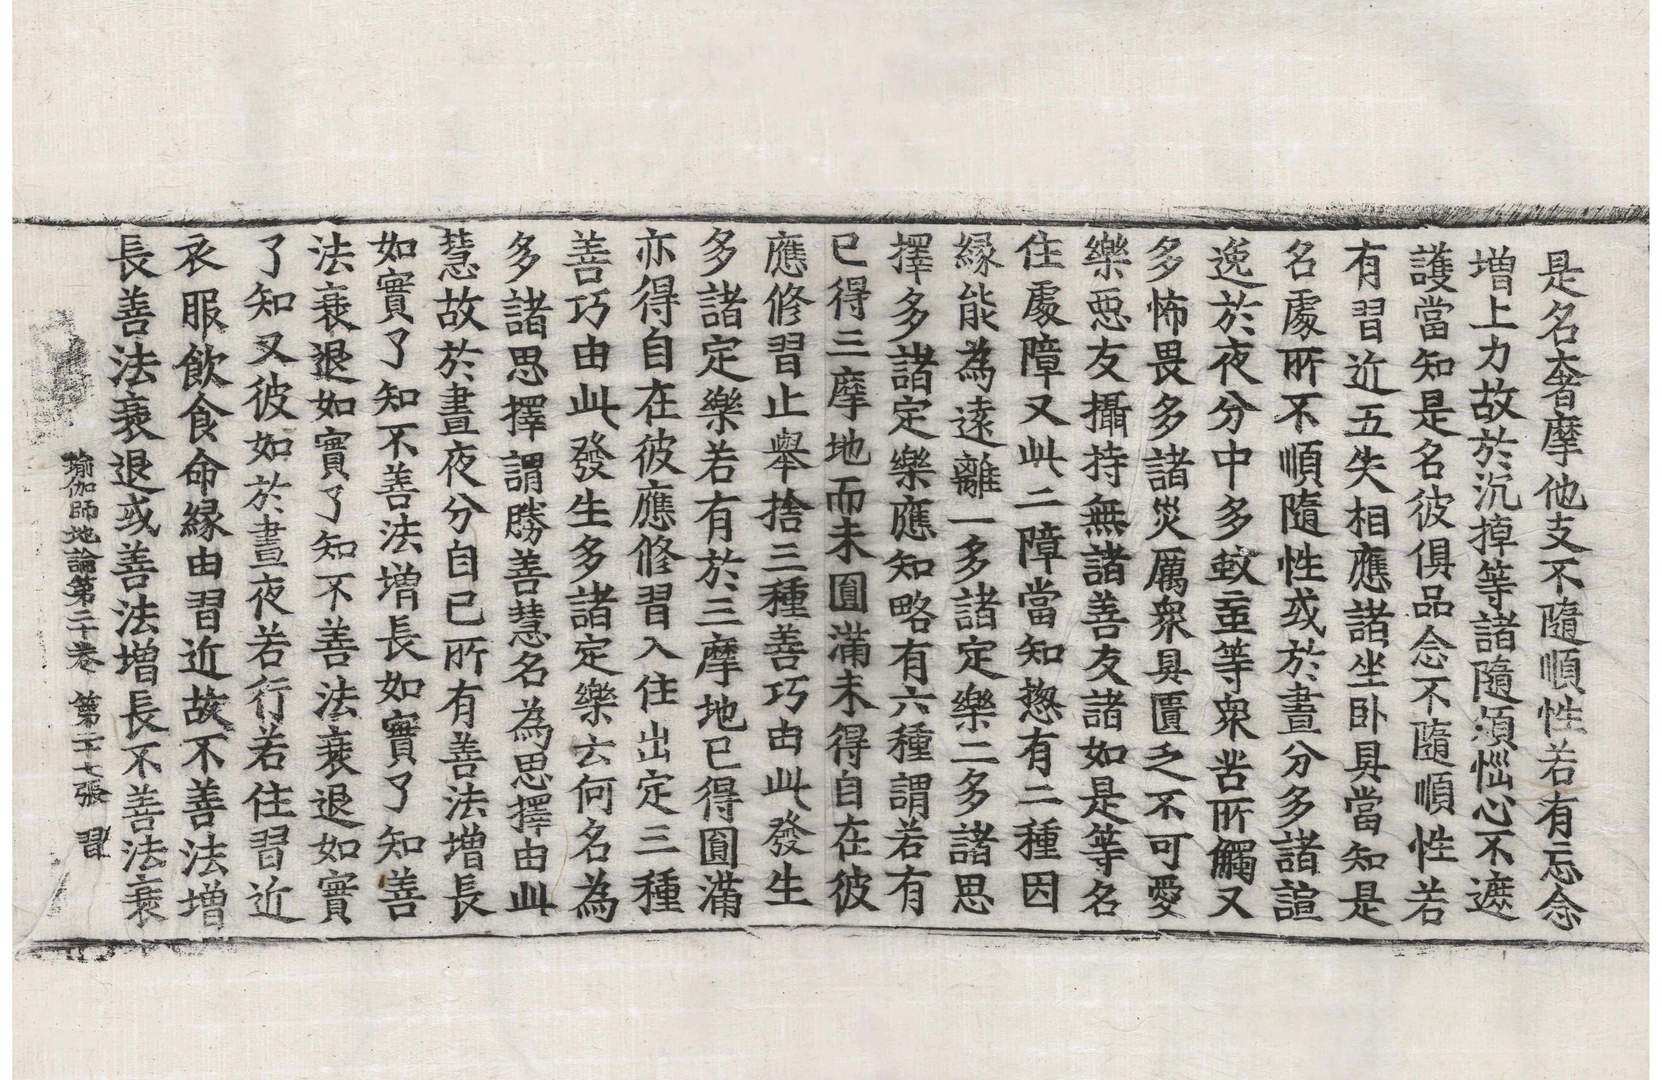 是名奢摩他支不隨順性若有忘念
增上力故於沉掉等諸隨煩惱心不遮
護當知是名彼俱品念不隨順性若
有習近五失相應諸坐卧具當知是
名處所不順隨性或於晝分多諸諠
逸於夜分中多蚊䖝等衆苦所觸又
多怖畏多諸災厲衆具匱乏不可愛
樂惡友攝持無諸善友諸如是等名
住處障又此二障當知揔有二種因
緣能為遠離一多諸定樂二多諸思
擇多諸定樂應知略有六種謂若有
已得三摩地而未圓滿未得自在彼
應修習止舉捨三種善巧由此發生
多諸定樂若有於三摩地已得圓滿
亦得自在彼應修習入住出定三種
善巧由此發生多諸定樂云何名為
多諸思擇謂勝善慧名為思擇由此
慧故於晝夜分自已所有善法增長
如實了知不善法增長如實了知善
法衰退如實了知不善法衰退如實
了知又彼如於晝夜若行若住習近
衣服飲食命緣由習近故不善法增
長善法衰退或善法增長不善法衰
瑜伽師地論第二十卷 第二十七張 習